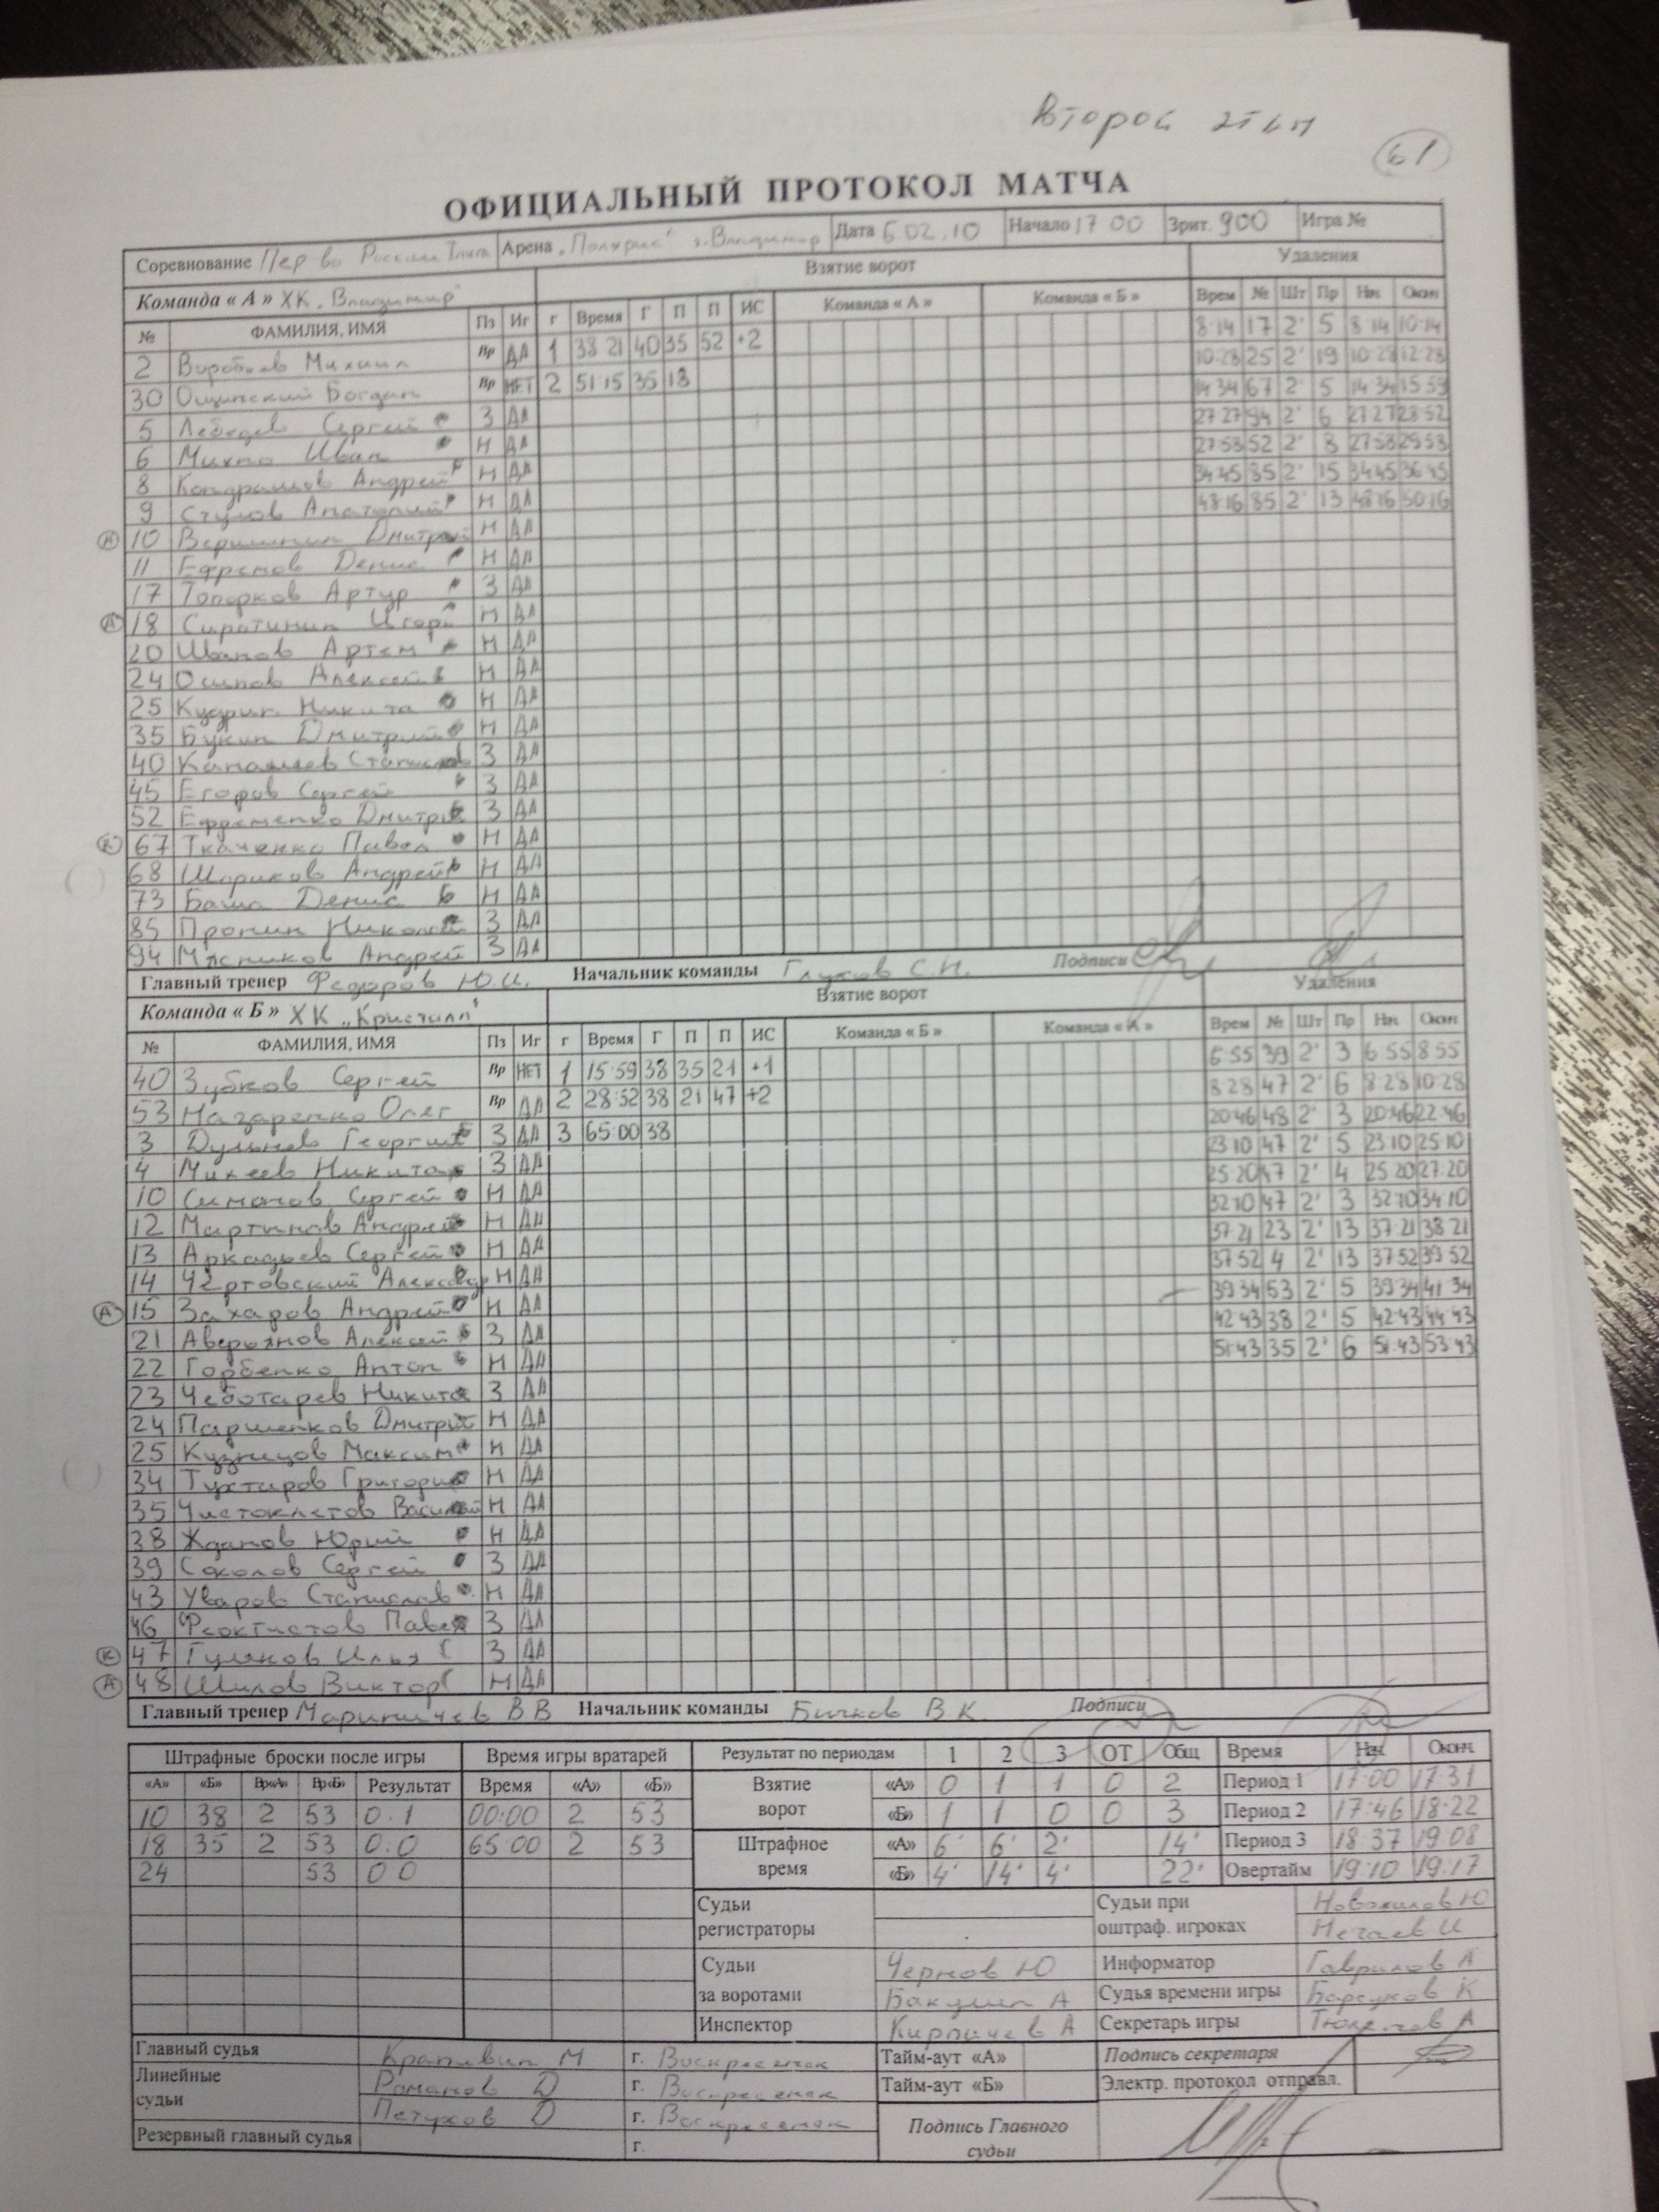 Второй этап
61
ОФИЦИАЛЬНЫЙ ПРОТОКОЛ МАТЧА
Соревнование Пер во России Арена „Полярис" г. Владимир Дата 6 02.10 Начало 17 00 Зрит. 900 Игра №
Команда « А » ХК „Владимир" Взятие ворот Удаления
№ ФАМИЛИЯ, ИМЯ Пз Иг г Время Г П П ИС Команда « А » Команда « Б » Врем № Шт Пр Нач Оконч
2 Воробьев Михаил Вр ДА 1 38 21 40 35 52 +2 8·14 17 2' 5 8·14 10·14
30 Ощинский Богдан Вр НЕТ 2 51·15 35 18 10·28 25 2' 19 10·28 12·28
5 Лебедев Сергей З ДА 14 34 67 2' 5 14 34 15 59
6 Михно Иван Н ДА 27 27 94 2' 6 27 27 28 52
8 Кондрашов Андрей Н ДА 27 53 52 2' 3 27 53 29 53
9 Стулов Анатолий Н ДА 34 45 85 2' 15 34 45 36 45
А 10 Вершинин Дмитрий Н ДА 48 16 85 2' 13 48 16 50 16
11 Ефремов Денис Н ДА
17 Топорков Артур З ДА
А 18 Сиротинин Игорь Н ДА
20 Шанов Артем Н ДА
24 Осипов Алексей Н ДА
25 Кудрин Никита Н ДА
35 Букин Дмитрий Н ДА
40 Станислав З ДА
45 Егоров Сергей З ДА
52 Ефременко Дмитрий З ДА
К 67 Ткаченко Павел Н ДА
68 Шариков Андрей Н ДА
73 Баша Денис Н ДА
85 Пронин Николай З ДА
94 Мясников Андрей З ДА
Главный тренер Федоров Ю.И. Начальник команды Глухов С.Н. Подписи
Команда « Б » ХК „Кристалл" Взятие ворот Удаления
№ ФАМИЛИЯ, ИМЯ Пз Иг г Время Г П П ИС Команда « Б » Команда « А » Врем № Шт Пр Нач Оконч
40 Зубков Сергей Вр НЕТ 1 15·59 38 35 21 +1 6·55 39 2' 3 6·55 8 55
53 Назаренко Олег Вр ДА 2 28:52 38 21 47 +2 8·28 47 2' 6 8·28 10·28
3 Дульнев Георгий З ДА 3 65:00 38 20·46 48 2' 3 20·46 22·46
4 Михеев Никита З ДА 23 10 47 2' 5 23 10 25 10
10 Симонов Сергей Н ДА 25 20 47 2' 4 25 20 27·20
12 Мартынов Андрей Н ДА 32 10 47 2' 3 32 10 34 10
13 Аркадьев Сергей Н ДА 37 21 23 2' 13 37·21 38 21
14 Чертовский Александр Н ДА 37 52 4 2' 13 37 52 39 52
А 15 Захаров Андрей Н ДА 39 34 53 2' 5 39 34 41 34
21 Аверьянов Алексей З ДА 42 43 38 2' 5 42·43 44·43
22 Горбенко Антон Н ДА 51·43 35 2' 6 51·43 53·43
23 Чеботарев Никита З ДА
24 Паршенков Дмитрий Н ДА
25 Кузнецов Максим Н ДА
34 Тухтаров Григорий Н ДА
35 Чистоклетов Василий Н ДА
38 Жданов Юрий Н ДА
39 Соколов Сергей З ДА
43 Уваров Станислав Н ДА
46 Феоктистов Павел З ДА
К 47 Гуляков Илья З ДА
А 48 Шилов Виктор Н ДА
Главный тренер Мариничев В В Начальник команды Бычков В К Подписи
Штрафные броски после игры Время игры вратарей Результат по периодам 1 2 3 ОТ Общ Время Нач. Оконч.
«А» «Б» Вр«А» Вр«Б» Результат Время «А» «Б» Взятие ворот «А» 0 1 1 0 2 Период 1 17:00 17:31
10 38 2 53 0:1 00:00 2 53 «Б» 1 1 0 0 3 Период 2 17:46 18:22
18 35 2 53 0:0 65 00 2 53 Штрафное время «А» 6' 6' 2' 14' Период 3 18:37 19:08
24 53 0 0 «Б» 4' 14' 4' 22' Овертайм 19:10 19:17
Судьи регистраторы Судьи при оштраф. игроках Новожилов Ю
Нечаев И
Судьи за воротами Чернов Ю Информатор Гаврилов А
Бакулин А Судья времени игры Барсуков К
Инспектор Кирпичев А Секретарь игры А
Главный судья Крапивин М г. Воскресенск Тайм-аут «А» Подпись секретаря
Линейные судьи Романов Д г. Воскресенск Тайм-аут «Б» Электр. протокол отправл.
Петухов Д г. Воскресенск Подпись Главного судьи
Резервный главный судья г.